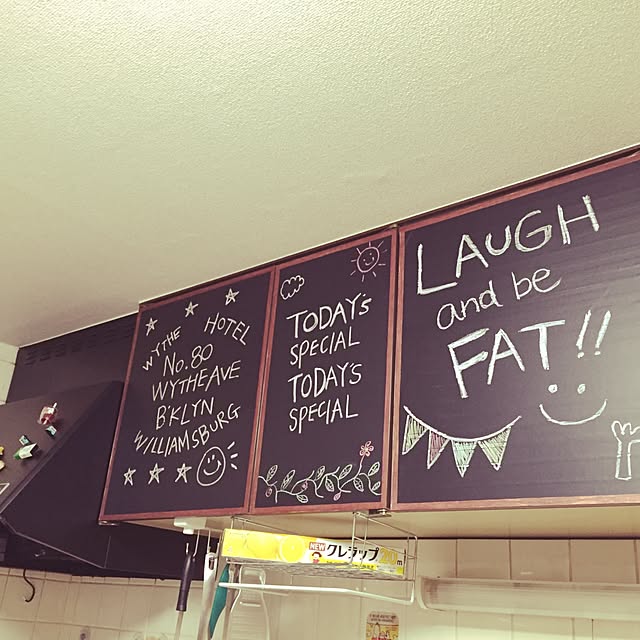 WYTHE HOTEL
No.80
WYTHEAVE
B'KLYN
WILLIAMSBURG
TODAY'S
SPECIAL
TODAY'S
SPECIAL
LAUGH
and be
FAT!!
NEW クレラップ